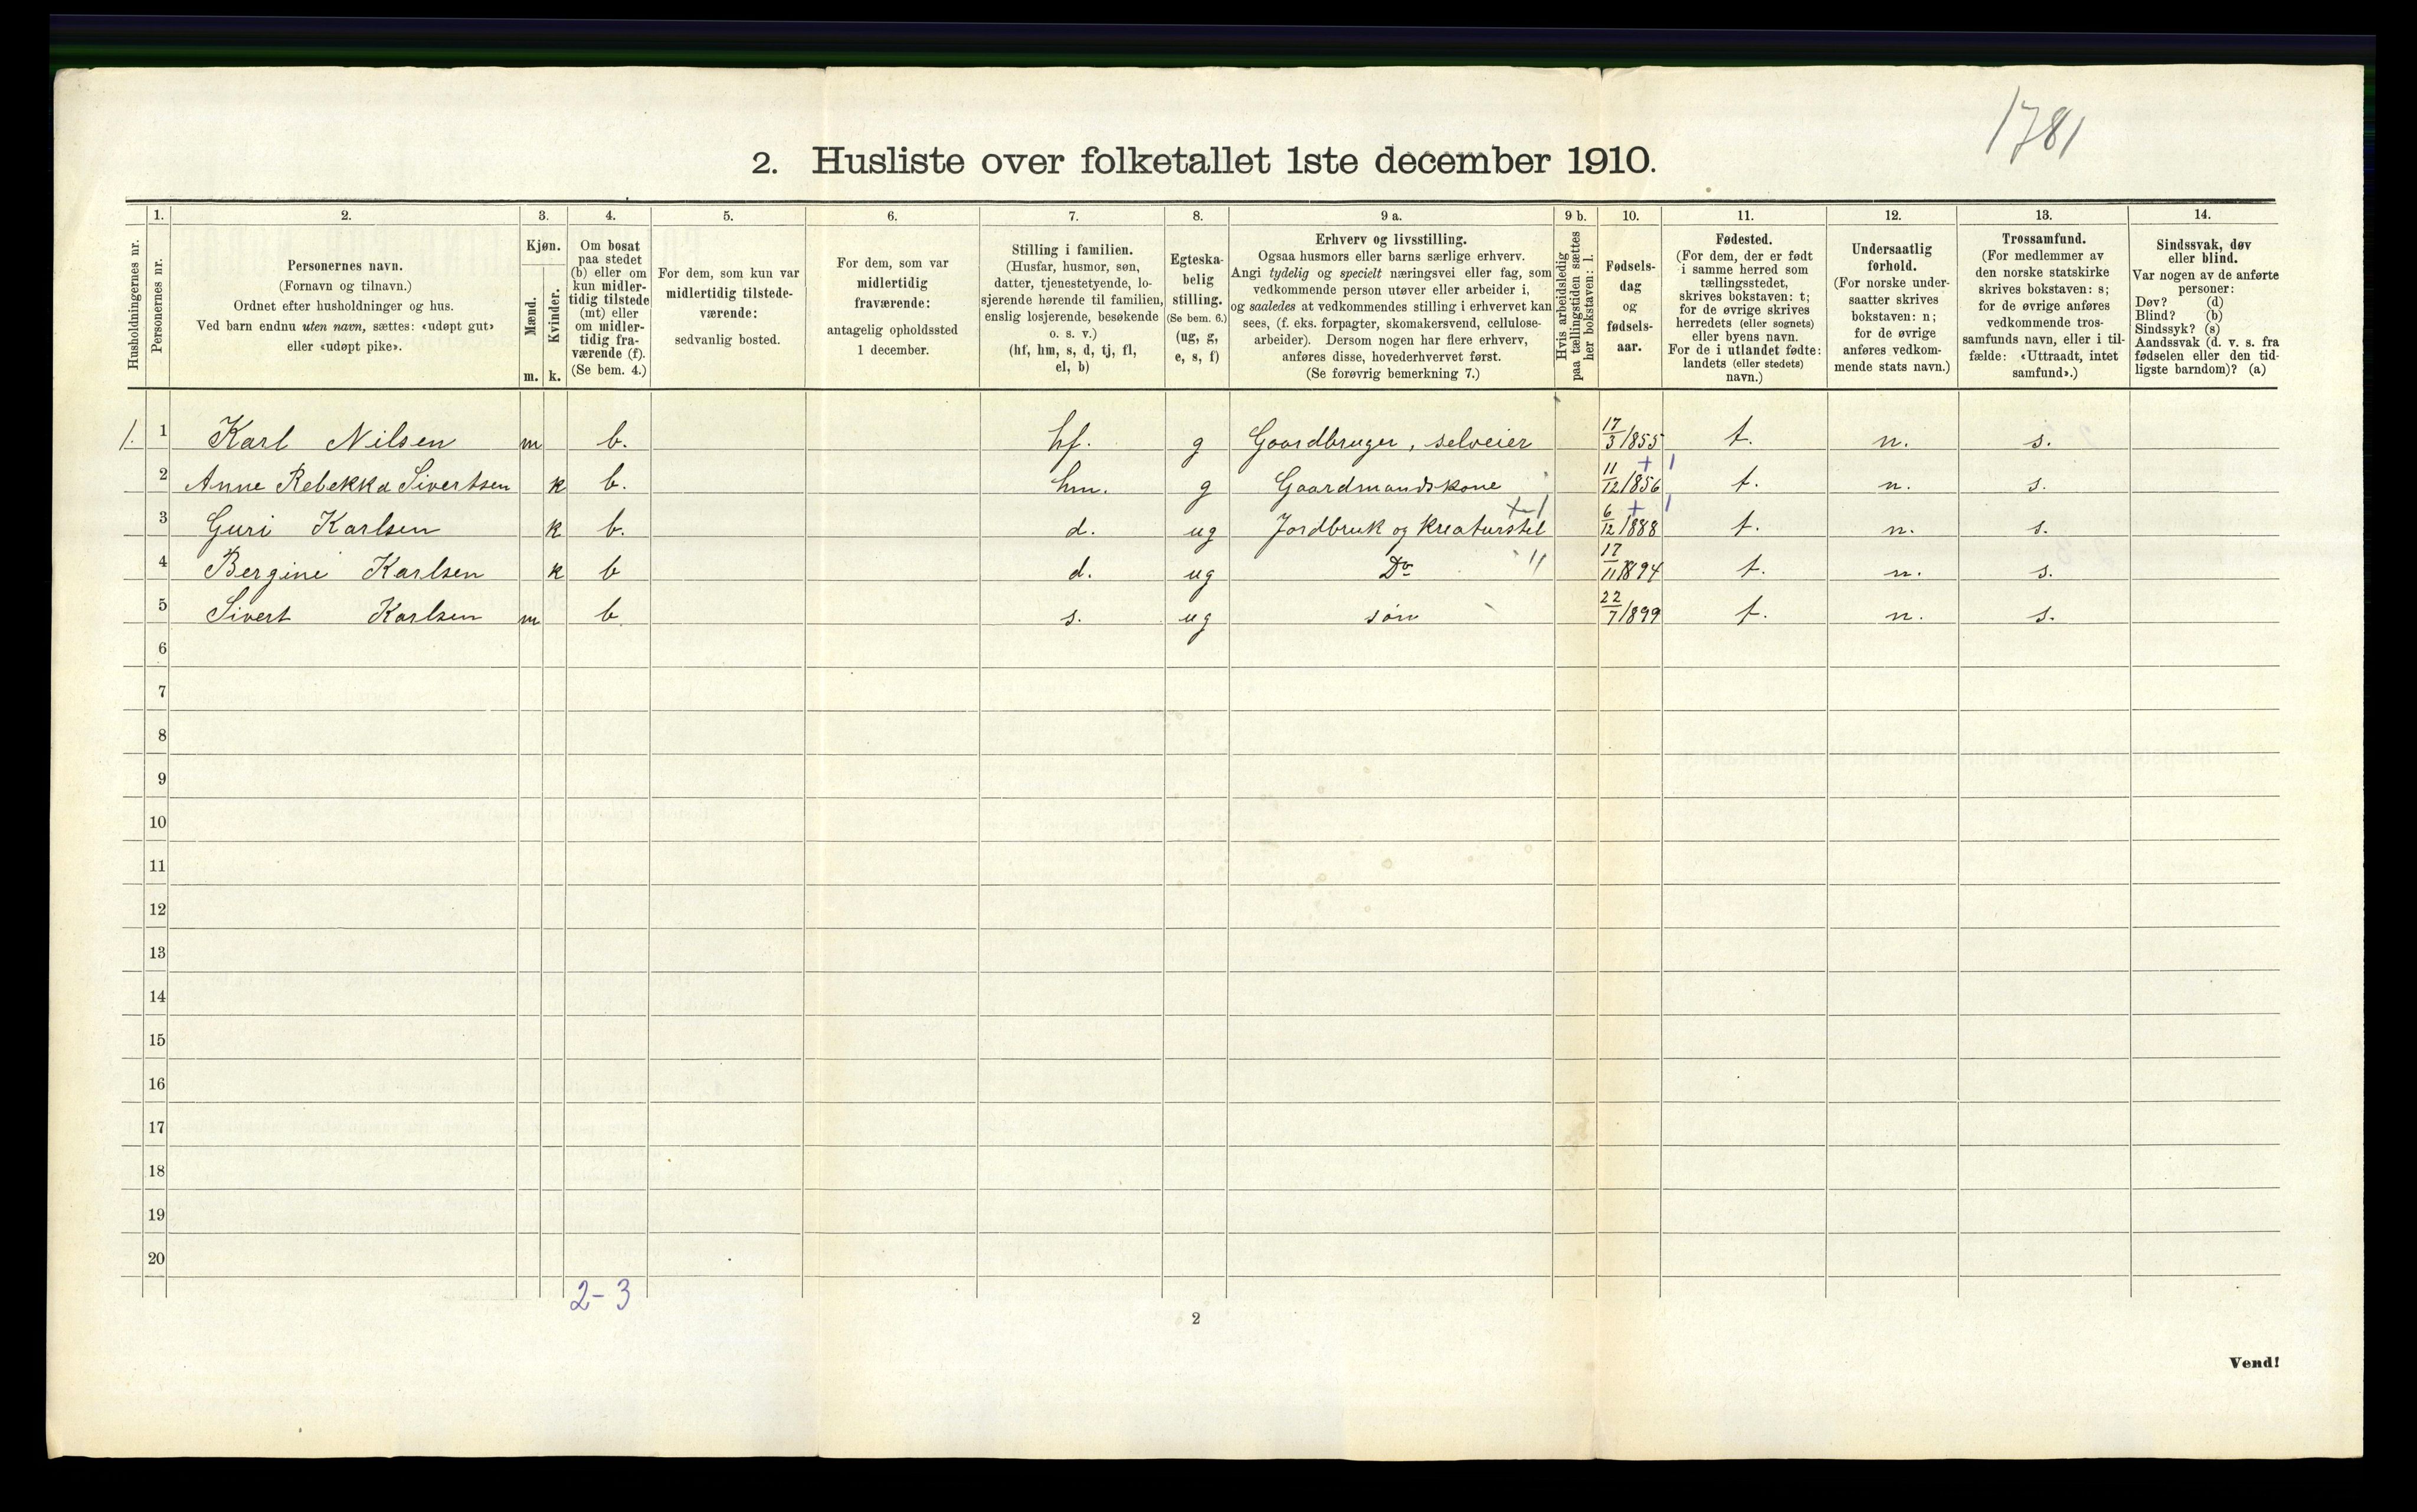 1781
2. Husliste over folketallet 1ste december 1910.
Husholdningernes nr.
1.
Personernes nr.
2.
Personernes navn.
(Fornavn og tilnavn.)
Ordnet efter husholdninger og hus.
Ved barn endnu uten navn, sættes: «udøpt gut»
eller «udøpt pike».
3.
Kjøn.
Mænd.
m.
Kvinder.
k.
4.
Om bosat
paa stedet
(b) eller om
kun midler-
tidig tilstede
(mt) eller
om midler-
tidig fra-
værende (f).
(Se bem. 4.)
5.
For dem, som kun var
midlertidig tilstede-
værende:
sedvanlig bosted.
6.
For dem, som var
midlertidig
fraværende:
antagelig opholdssted
1 december.
7.
Stilling i familien.
(Husfar, husmor, søn,
datter, tjenestetyende, lo-
sjerende hørende til familien,
enslig losjerende, besøkende
o. s. v.)
(hf, hm, s, d, tj, fl,
el, b)
8.
Egteska-
belig
stilling.
(Se bem. 6.)
(ug, g,
e, s, f)
9 a.
Erhverv og livsstilling.
Ogsaa husmors eller barns særlige erhverv.
Angi tydelig og specielt næringsvei eller fag, som
vedkommende person utøver eller arbeider i,
og saaledes at vedkommendes stilling i erhvervet kan
sees, (f. eks. forpagter, skomakersvend, cellulose-
arbeider). Dersom nogen har flere erhverv,
anføres disse, hovederhvervet først.
(Se forøvrig bemerkning 7.)
9 b.
Hvis arbeidsledig
paa tællingstiden sættes
her bokstaven: l.
10.
Fødsels-
dag
og
fødsels-
aar.
11.
Fødested.
(For dem, der er født
i samme herred som
tællingsstedet,
skrives bokstaven: t;
for de øvrige skrives
herredets (eller sognets)
eller byens navn.
For de i utlandet fødte:
landets (eller stedets)
navn.)
12.
Undersaatlig
forhold.
(For norske under-
saatter skrives
bokstaven: n;
for de øvrige
anføres vedkom-
mende stats navn.)
13.
Trossamfund.
(For medlemmer av
den norske statskirke
skrives bokstaven: s;
for de øvrige anføres
vedkommende tros-
samfunds navn, eller i til-
fælde: «Uttraadt, intet
samfund».)
14.
Sindssvak, døv
eller blind.
Var nogen av de anførte
personer:
Døv? (d)
Blind? (b)
Sindssyk? (s)
Aandssvak (d. v. s. fra
fødselen eller den tid-
ligste barndom)? (a)
1. 1 Karl Nilsen m b. hf. g Gaardbruger, selveier 17/3/1855 t. n. s.
2 Anne Rebekka Sivertsen k b. hm. g Gaardmandskone 11/12/1856 + 1 t. n. s.
3 Guri Karlsen k b. d. ug Jordbruk og kreaturstel +1 6/12/1888 + 1 t. n. s.
4 Bergine Karlsen k b d. ug Do " 17/11 1894 t. n. s.
5 Sivert Karlsen m b s. ug søn 22/7/1899 t. n. s.
6
7
8
9
10
11
12
13
14
15
16
17
18
19
20
2-3
2
Vend!